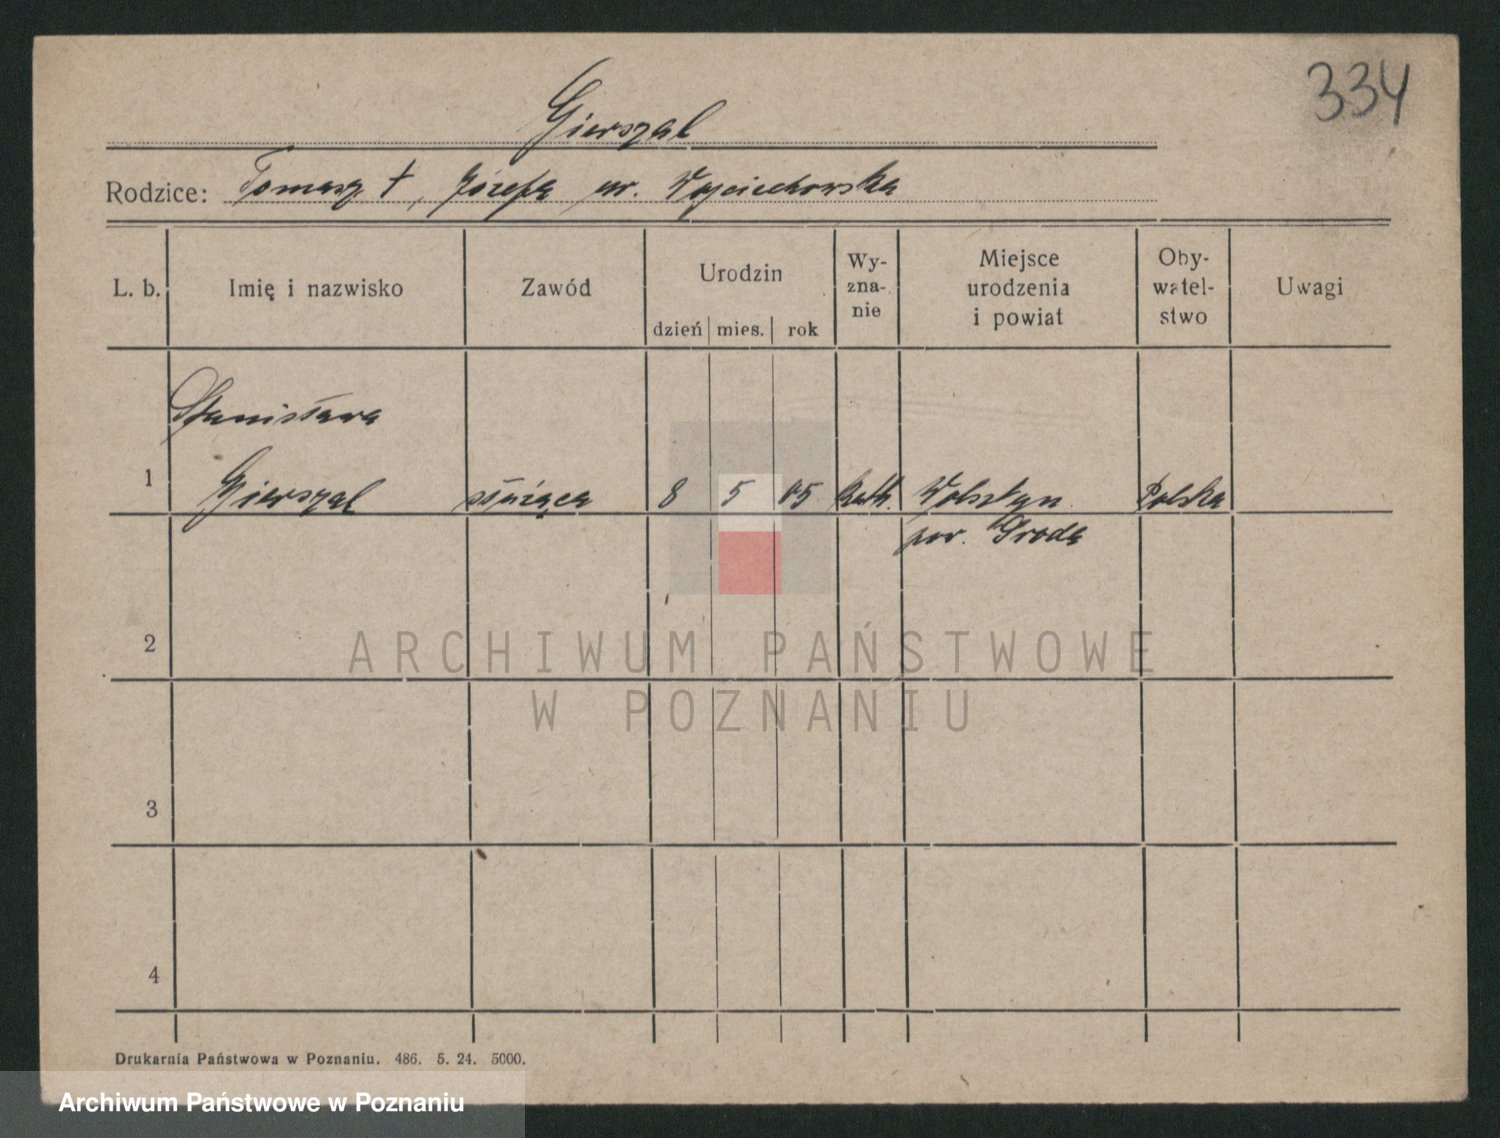 334
Gierszal
Rodzice: Tomasz †, Józefa ur. Wojciechowska
L. b. Imię i nazwisko Zawód Urodzin dzień mies. rok Wy-zna-nie Miejsce urodzenia i powiat Oby-watel-stwo Uwagi
Stanisława
1 Gierszal służąca 8 5 05 kath. Polska
pow. Środa
2
ARCHIWUM PAŃSTWOWE
W POZNANIU
3
4
Drukarnia Państwowa w Poznaniu. 486. 5. 24. 5000.
Archiwum Państwowe w Poznaniu